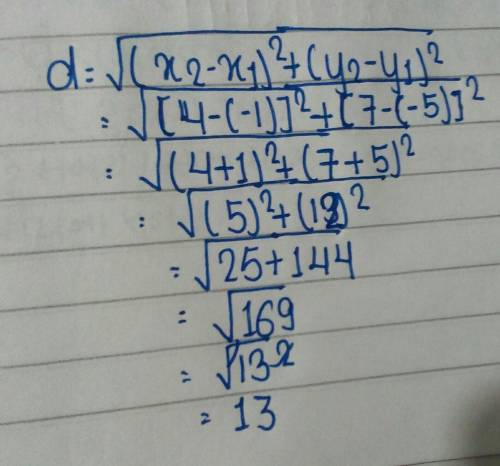 d = √(x₂-x₁)²+(y₂-y₁)²
= √[4-(-1)]²+[7-(-5)]²
= √(4+1)²+(7+5)²
= √(5)²+(12)²
= √25+144
= √169
= √13²
= 13